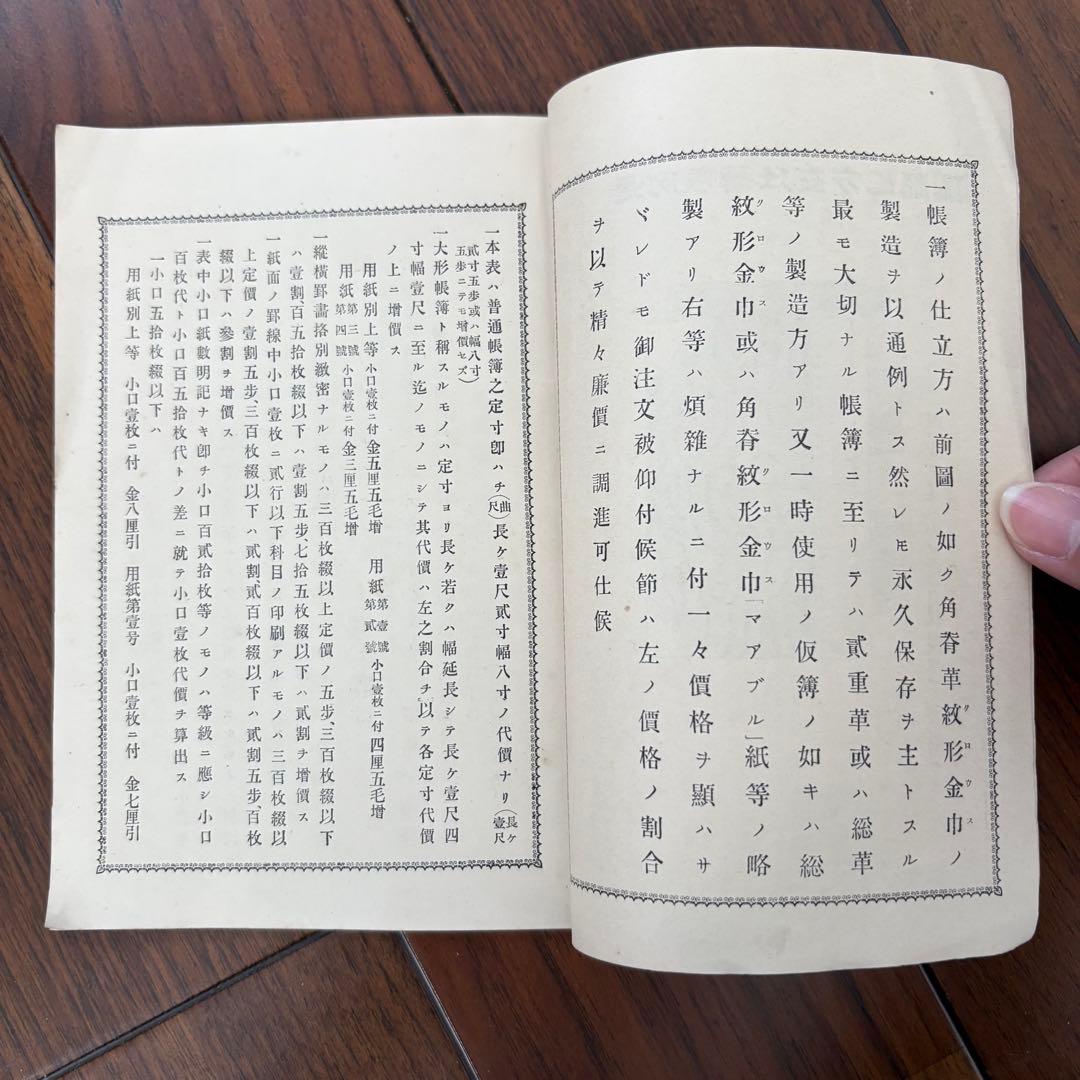 一帳簿ノ仕立方ハ前圖ノ如ク角脊革紋形金巾ノ
クロウス
製造ヲ以通例トス然レ𪜈永久保存ヲ主トスル
最モ大切ナル帳簿ニ至リテハ貳重革或ハ総革
等ノ製造方アリ又一時使用ノ仮簿ノ如キハ総
紋形金巾或ハ角脊紋形金巾「マアブル」紙等ノ略
クロウス
クロウス
製アリ右等ハ煩雜ナルニ付一々價格ヲ顯ハサ
ヾレドモ御注文被仰付候節ハ左ノ價格ノ割合
ヲ以テ精々廉價ニ調進可仕候
一本表ハ普通帳簿之定寸卽ハチ(曲尺)長ケ壹尺貳寸幅八寸ノ代價ナリ(長ケ壹尺
貳寸五歩或ハ幅八寸五歩ニテモ增價セズ)
一大形帳簿ト稱スルモノハ定寸ヨリ長ケ若クハ幅延長シテ長ケ壹尺四
寸幅壹尺ニ至ル迄ノモノニシテ其代價ハ左之割合チ以テ各定寸代價
ノ上ニ增價ス
用紙別上等 小口壹枚ニ付金五厘五毛增 用紙第壹號第貳號小口壹枚ニ付四厘五毛增
用紙第三號第四號小口壹枚ニ付金三厘五毛增
一縱橫罫畫挌別緻密ナルモノハ三百枚綴以上定價ノ五步、三百枚綴以下
ハ壹割、百五拾枚綴以下ハ壹割五步、七拾五枚綴以下ハ貳割チ增價ス
一紙面ノ罫線中小口壹枚ニ貳行以下科目ノ印刷アルモノハ三百枚綴以
上定價ノ壹割五步、三百枚綴以下ハ貳割貳百枚綴以下ハ貳割五步百枚
綴以下ハ參割ヲ增價ス
一表中小口紙數明記ナキ卽チ小口百貳拾枚等ノモノハ等級ニ應シ小口
百枚代ト小口百五拾枚代トノ差ニ就テ小口壹枚代價チ算出ス
一小口五拾枚綴以下ハ
用紙別上等 小口壹枚ニ付 金八厘引 用紙第壹号 小口壹枚ニ付 金七厘引